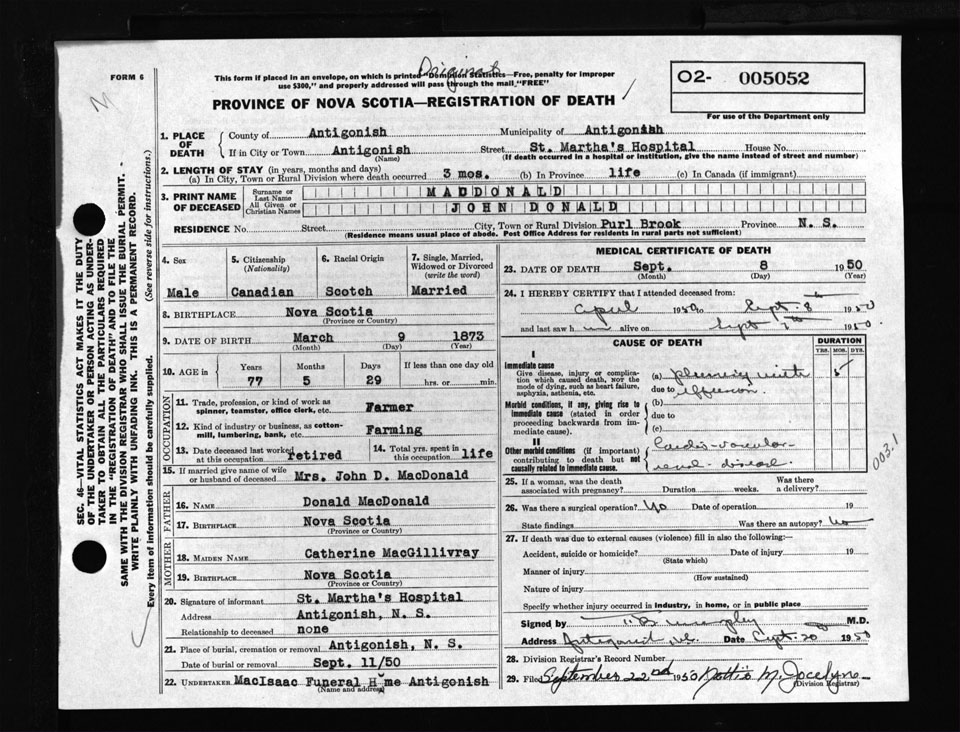 Original
FORM 6
This form if placed in an envelope, on which is printed "Dominion Statistics—Free, penalty for improper
use $300," and properly addressed will pass through the mail "FREE"
O2- 005052
For use of the Department only
PROVINCE OF NOVA SCOTIA—REGISTRATION OF DEATH
1. PLACE OF DEATH
County of Antigonish Municipality of Antigonish
If in City or Town Antigonish Street St. Martha's Hospital House No.
(Name) (If death occurred in a hospital or institution, give the name instead of street and number)
2. LENGTH OF STAY (in years, months and days)
(a) In City, Town or Rural Division where death occurred 3 mos. (b) In Province life (c) In Canada (if immigrant)
3. PRINT NAME OF DECEASED
Surname or Last Name MACDONALD
All Given or Christian Names JOHN DONALD
RESIDENCE No. Street City, Town or Rural Division Purl Brook Province N. S.
(Residence means usual place of abode. Post Office Address for residents in rural parts not sufficient)
4. Sex
Male
5. Citizenship
(Nationality)
Canadian
6. Racial Origin
Scotch
7. Single, Married, Widowed or Divorced
(write the word)
Married
8. BIRTHPLACE Nova Scotia
(Province or Country)
9. DATE OF BIRTH March 9 1873
(Month) (Day) (Year)
10. AGE in Years Months Days If less than one day old
77 5 29 hrs. or min.
OCCUPATION
11. Trade, profession, or kind of work as
spinner, teamster, office clerk, etc. Farmer
12. Kind of industry or business, as cotton-
mill, lumbering, bank, etc. Farming
13. Date deceased last worked at this occupation retired
14. Total yrs. spent in this occupation life
15. If married give name of wife
or husband of deceased Mrs. John D. MacDonald
FATHER
16. NAME Donald MacDonald
17. BIRTHPLACE Nova Scotia
(Province or Country)
MOTHER
18. MAIDEN NAME Catherine MacGillivray
19. BIRTHPLACE Nova Scotia
(Province or Country)
20. Signature of informant St. Martha's Hospital
Address Antigonish, N. S.
Relationship to deceased none
21. Place of burial, cremation or removal Antigonish, N. S.
Date of burial or removal Sept. 11/50
22. UNDERTAKER MacIsaac Funeral Home Antigonish
(Name and address)
MEDICAL CERTIFICATE OF DEATH
23. DATE OF DEATH Sept. 8 1950
(Month) (Day) (Year)
24. I HEREBY CERTIFY that I attended deceased from:
April 1950 to Sept. 8th 1950
and last saw him alive on Sept 1950.
CAUSE OF DEATH
DURATION
YRS. MOS. DYS.
I
Immediate cause
Give disease, injury or complica-
tion which caused death, NOT the
mode of dying, such as heart failure,
asphyxia, asthenia, etc.
(a) pleurisy with 5
due to effusion
Morbid conditions, if any, giving rise to
immediate cause (stated in order
proceeding backwards from im-
mediate cause).
(b)
due to
(c)
II
Other morbid conditions (if important)
contributing to death but not
causally related to immediate cause.
Cardio-vascular-
renal-disease
003.1
25. If a woman, was the death associated with pregnancy? Duration weeks. Was there a delivery?
26. Was there a surgical operation? No Date of operation 19
State findings Was there an autopsy? No
27. If death was due to external causes (violence) fill in also the following:—
Accident, suicide or homicide? Date of injury 19
(State which)
Manner of injury
(How sustained)
Nature of injury
Specify whether injury occurred in industry, in home, or in public place
Signed by Murphy M.D.
Address Antigonish N.S. Date Sept. 20 1950
28. Division Registrar's Record Number
29. Filed September 22nd 1950 Dottie M. Jocelyn
(Division Registrar)
SEC. 46—VITAL STATISTICS ACT MAKES IT THE DUTY
OF THE UNDERTAKER OR PERSON ACTING AS UNDER-
TAKER TO OBTAIN ALL THE PARTICULARS REQUIRED
IN THE "REGISTRATION OF DEATH" AND TO FILE THE
SAME WITH THE DIVISION REGISTRAR WHO SHALL ISSUE THE BURIAL PERMIT.
WRITE PLAINLY WITH UNFADING INK. THIS IS A PERMANENT RECORD.
Every item of information should be carefully supplied. (See reverse side for instructions.)